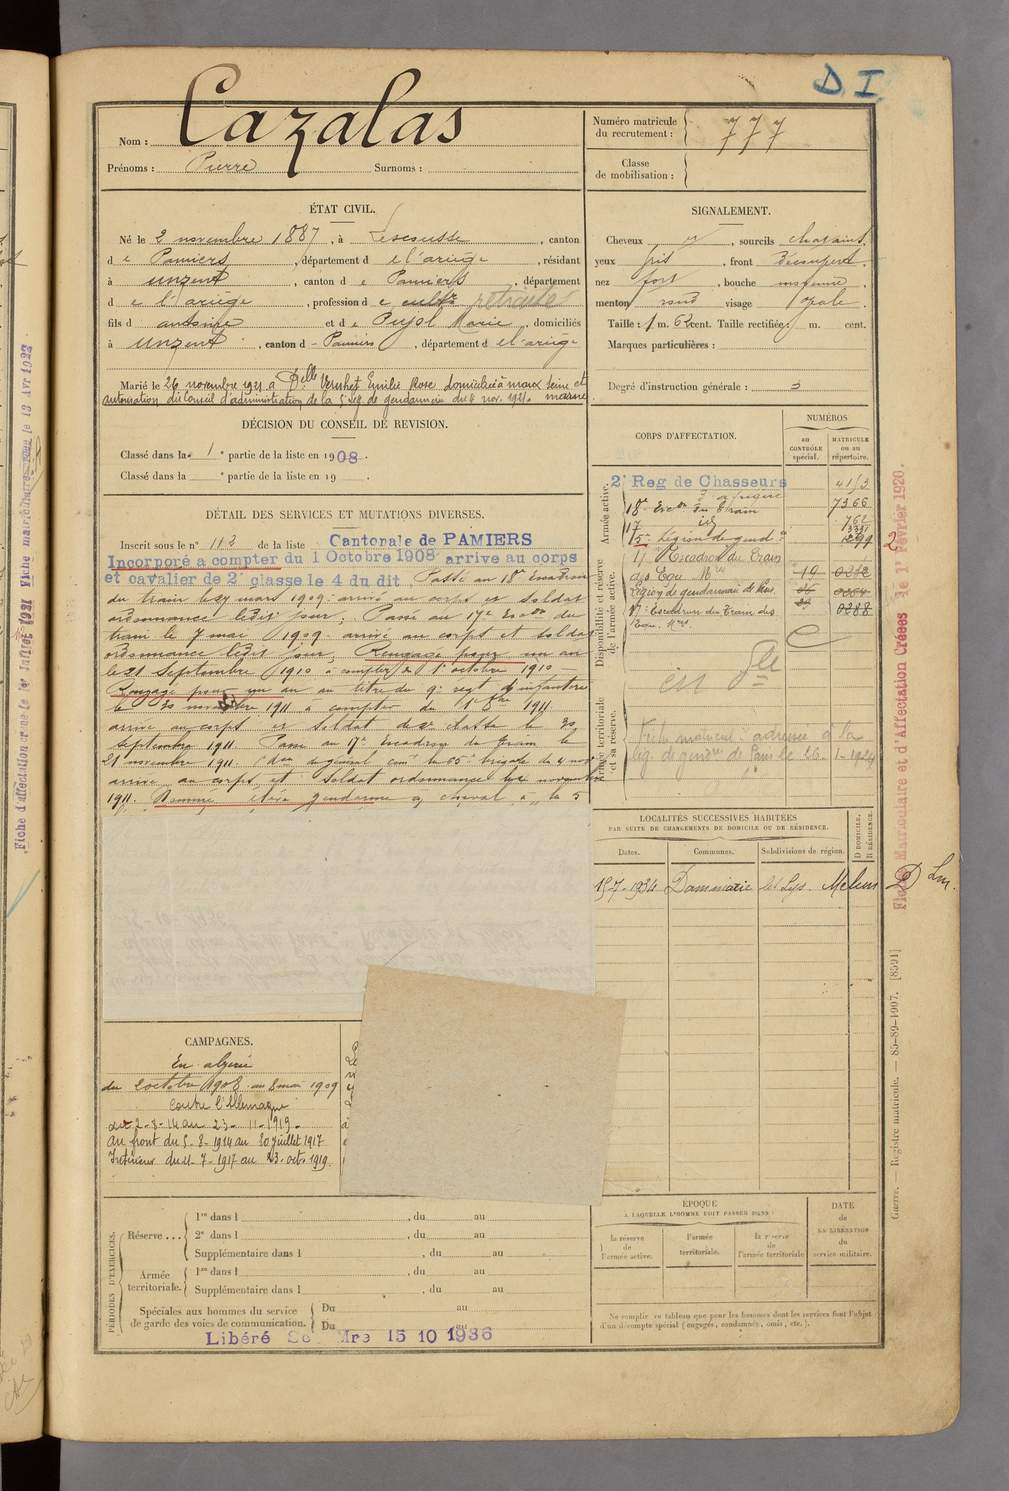 D. I.
Nom : Cazalas
Prénoms : Pierre Surnoms :
Numéro matricule du recrutement : 777
Classe de mobilisation :
ÉTAT CIVIL.
Né le 2 novembre 1887, à Lescousse, canton
de Pamiers, département de l'ariège, résidant
à Unzent, canton de Pamiers, département
de l'ariège, profession de cultr retraité
fils d antoine et de Pujol Marie, domiciliés
à Unzent, canton d Pamiers, département de l'ariège
Marié le 26 novembre 1921 à Delle Vernhet Emilie Rose domiciliée à meaux seine et marne
autorisation du Conseil d'administration de la 5e Lég. de gendarmerie du 4 nov. 1921.
SIGNALEMENT.
Cheveux , sourcils chatains,
yeux gris, front découvert,
nez fort, bouche moyenne,
menton rond visage ovale.
Taille : 1 m. 62 cent. Taille rectifiée : m. cent.
Marques particulières :
Degré d'instruction générale : 3
DÉCISION DU CONSEIL DE REVISION.
Classé dans la 1e partie de la liste en 1908.
Classé dans la e partie de la liste en 19 .
DÉTAIL DES SERVICES ET MUTATIONS DIVERSES.
Inscrit sous le n° 112 de la liste Cantonale de PAMIERS
Incorporé à compter du 1 Octobre 1908 arrive au corps
et cavalier de 2e classe le 4 du dit Passé au 18e Escadron
du train le 27 mars 1909 arrivé au corps et soldat
ordonnance ledit jour; Passé au 17e Eson du
train le 7 mai 1909 arrivé au corps et soldat
ordonnance ledit jour; Rengagé pour un an
le 21 Septembre 1910 à compter du 1er octobre 1910
Rengagé pour un an au titre du 9e regt d'infanterie
le 30 1911 à compter du 1er 8bre 1911.
arrivé au corps et soldat de 2e classe le 30
septembre 1911. Passé au 17e Escadron du Train le
21 novembre 1911. du général comt la 65e brigade du 4 nov
arrivé au corps et soldat ordonnance le novembre
1911. Nommé élève gendarme à cheval à la 5
CORPS D'AFFECTATION.
NUMÉROS
au CONTRÔLE spécial.
MATRICULE ou au répertoire.
Armée active.
2e Reg de Chasseurs
d'afrique
18e Escon du Train 7366
17 id 762
15e Légion de gend
Disponibilité et réserve de l'armée active.
17e Escadron du Train
des Equ. Mres 19 0212
Légion de gendarmerie de Paris
17e Escadron du Train des 0288
Equ. Mres
Armée territoriale et sa réserve.
Fiche matricul. adressée à la
lég. de gendrie de Paris le 26-1-1924
LOCALITÉS SUCCESSIVES HABITÉES
PAR SUITE DE CHANGEMENTS DE DOMICILE OU DE RÉSIDENCE.
Dates.
Communes.
Subdivisions de région.
D DOMICILE.
R RÉSIDENCE.
15-7-1934 Dammarie les Lys Melun D
CAMPAGNES.
En algérie
du 2 octobre 1908 au 8 mai 1909
contre l'Allemagne
du 2-8-14 au 23-11-1919.
au front du 5-8-1914 au 20 juillet 1917
Intérieur du 21-7-1917 au 23 oct. 1919.
PÉRIODES D'EXERCICES.
Réserve...
1re dans l , du au
2e dans l , du au
Supplémentaire dans l , du au
Armée territoriale.
1re dans l , du au
Supplémentaire dans l , du au
Spéciales aux hommes du service de garde des voies de communication.
Du au
Du au
Libéré Mre 15 10 1936
ÉPOQUE
À LAQUELLE L'HOMME DOIT PASSER DANS :
la réserve de l'armée active.
l'armée territoriale.
la réserve de l'armée territoriale
DATE de LA LIBÉRATION du service militaire.
Ne remplir ce tableau que pour les hommes dont les services font l'objet
d'un décompte spécial (engagés, condamnés, omis, etc.).
Fiche Matriculaire et d'Affectation Créées le 1er Février 1920.
Guerre. — Registre matricule. — 85-89-1907. [8591]